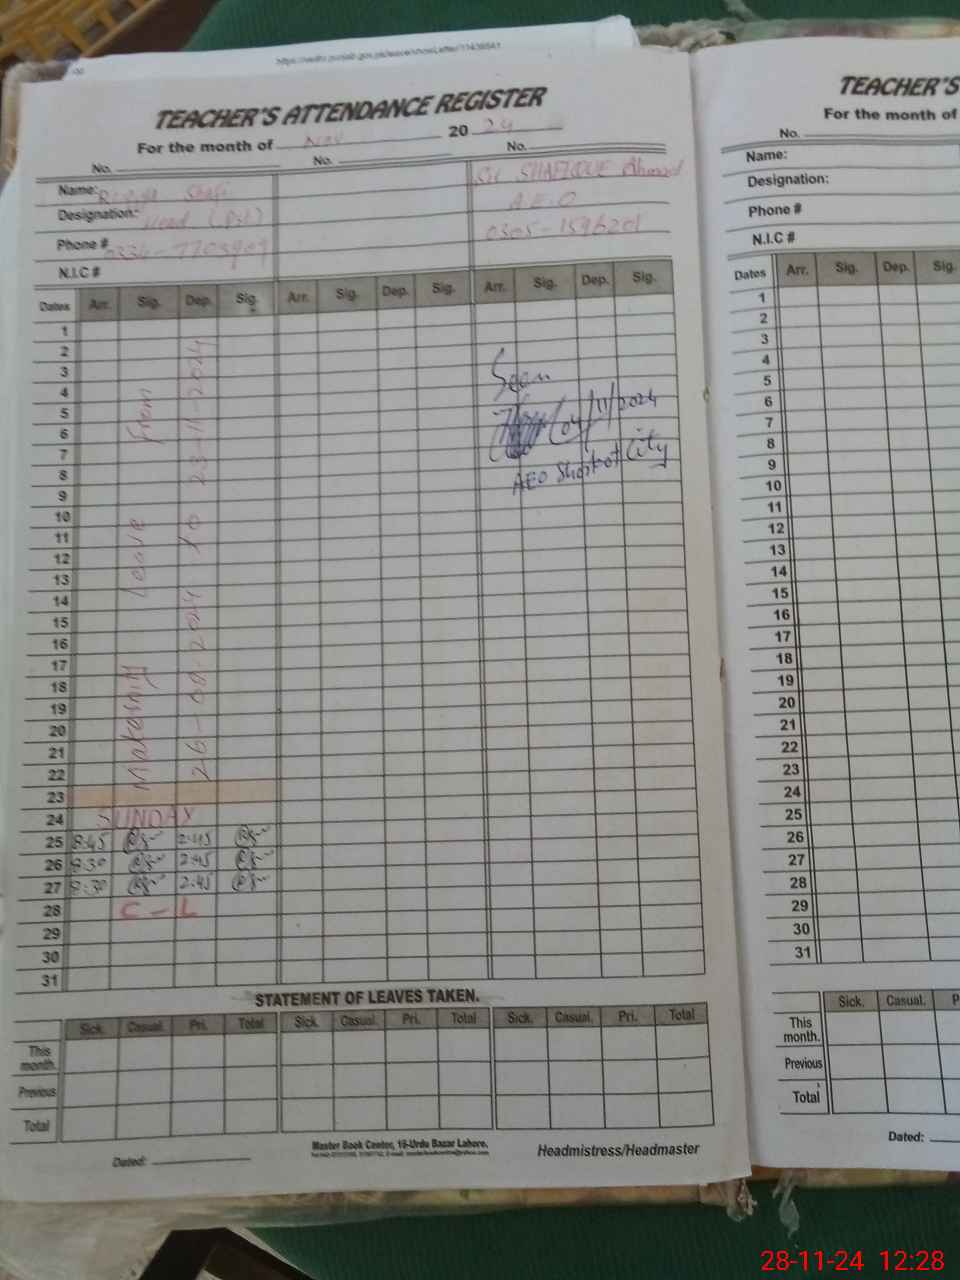 TEACHER'S ATTENDANCE REGISTER
For the month of Nov 2024
No. No. No.
Name: Shafi
Sir SHAFIQUE Ahmad
Designation: Head (Pst)
A.E.O
Phone # 0305-1596201
N.I.C #
Dates Arr. Sig. Dep. Sig. Arr. Sig. Dep. Sig. Arr. Sig. Dep. Sig.
1
2
3
4
5
6
7
8
9
10
11
12
13
14
15
16
17
18
19
20
21
22
23
24 SUNDAY
25 8:45 2:45
26 8:30 2:45
27 8:30 2:45
28 C-L
29
30
31
leave from
26-08-2024 to 23-11-2024
Seen
04/11/2024
AEO Shorkot City
STATEMENT OF LEAVES TAKEN.
Sick. Casual. Pri. Total Sick. Casual. Pri. Total Sick. Casual. Pri. Total
This month.
Previous
Total
Dated:
Master Book Center, 16-Urdu Bazar Lahore.
Headmistress/Headmaster
TEACHER'S
For the month of
No.
Name:
Designation:
Phone #
N.I.C #
Dates Arr. Sig. Dep. Sig.
1
2
3
4
5
6
7
8
9
10
11
12
13
14
15
16
17
18
19
20
21
22
23
24
25
26
27
28
29
30
31
Sick. Casual. P
This month.
Previous
Total
Dated:
28-11-24 12:28